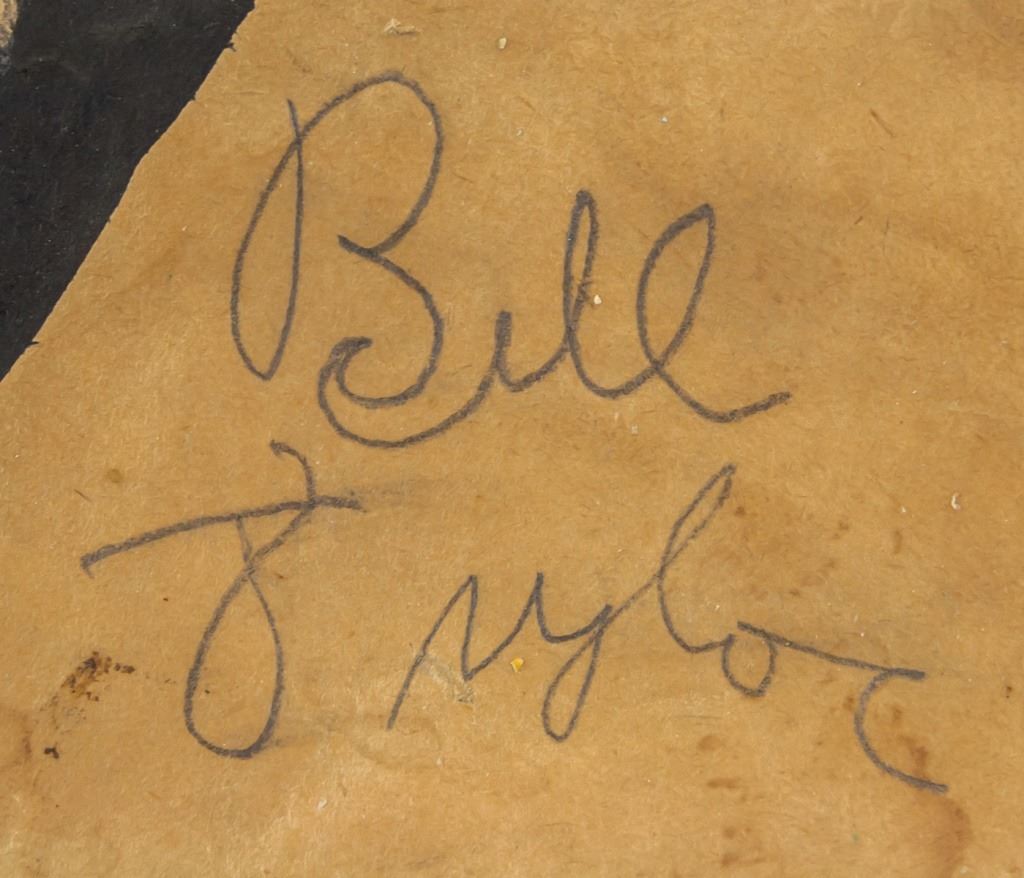 Bill
Traylor